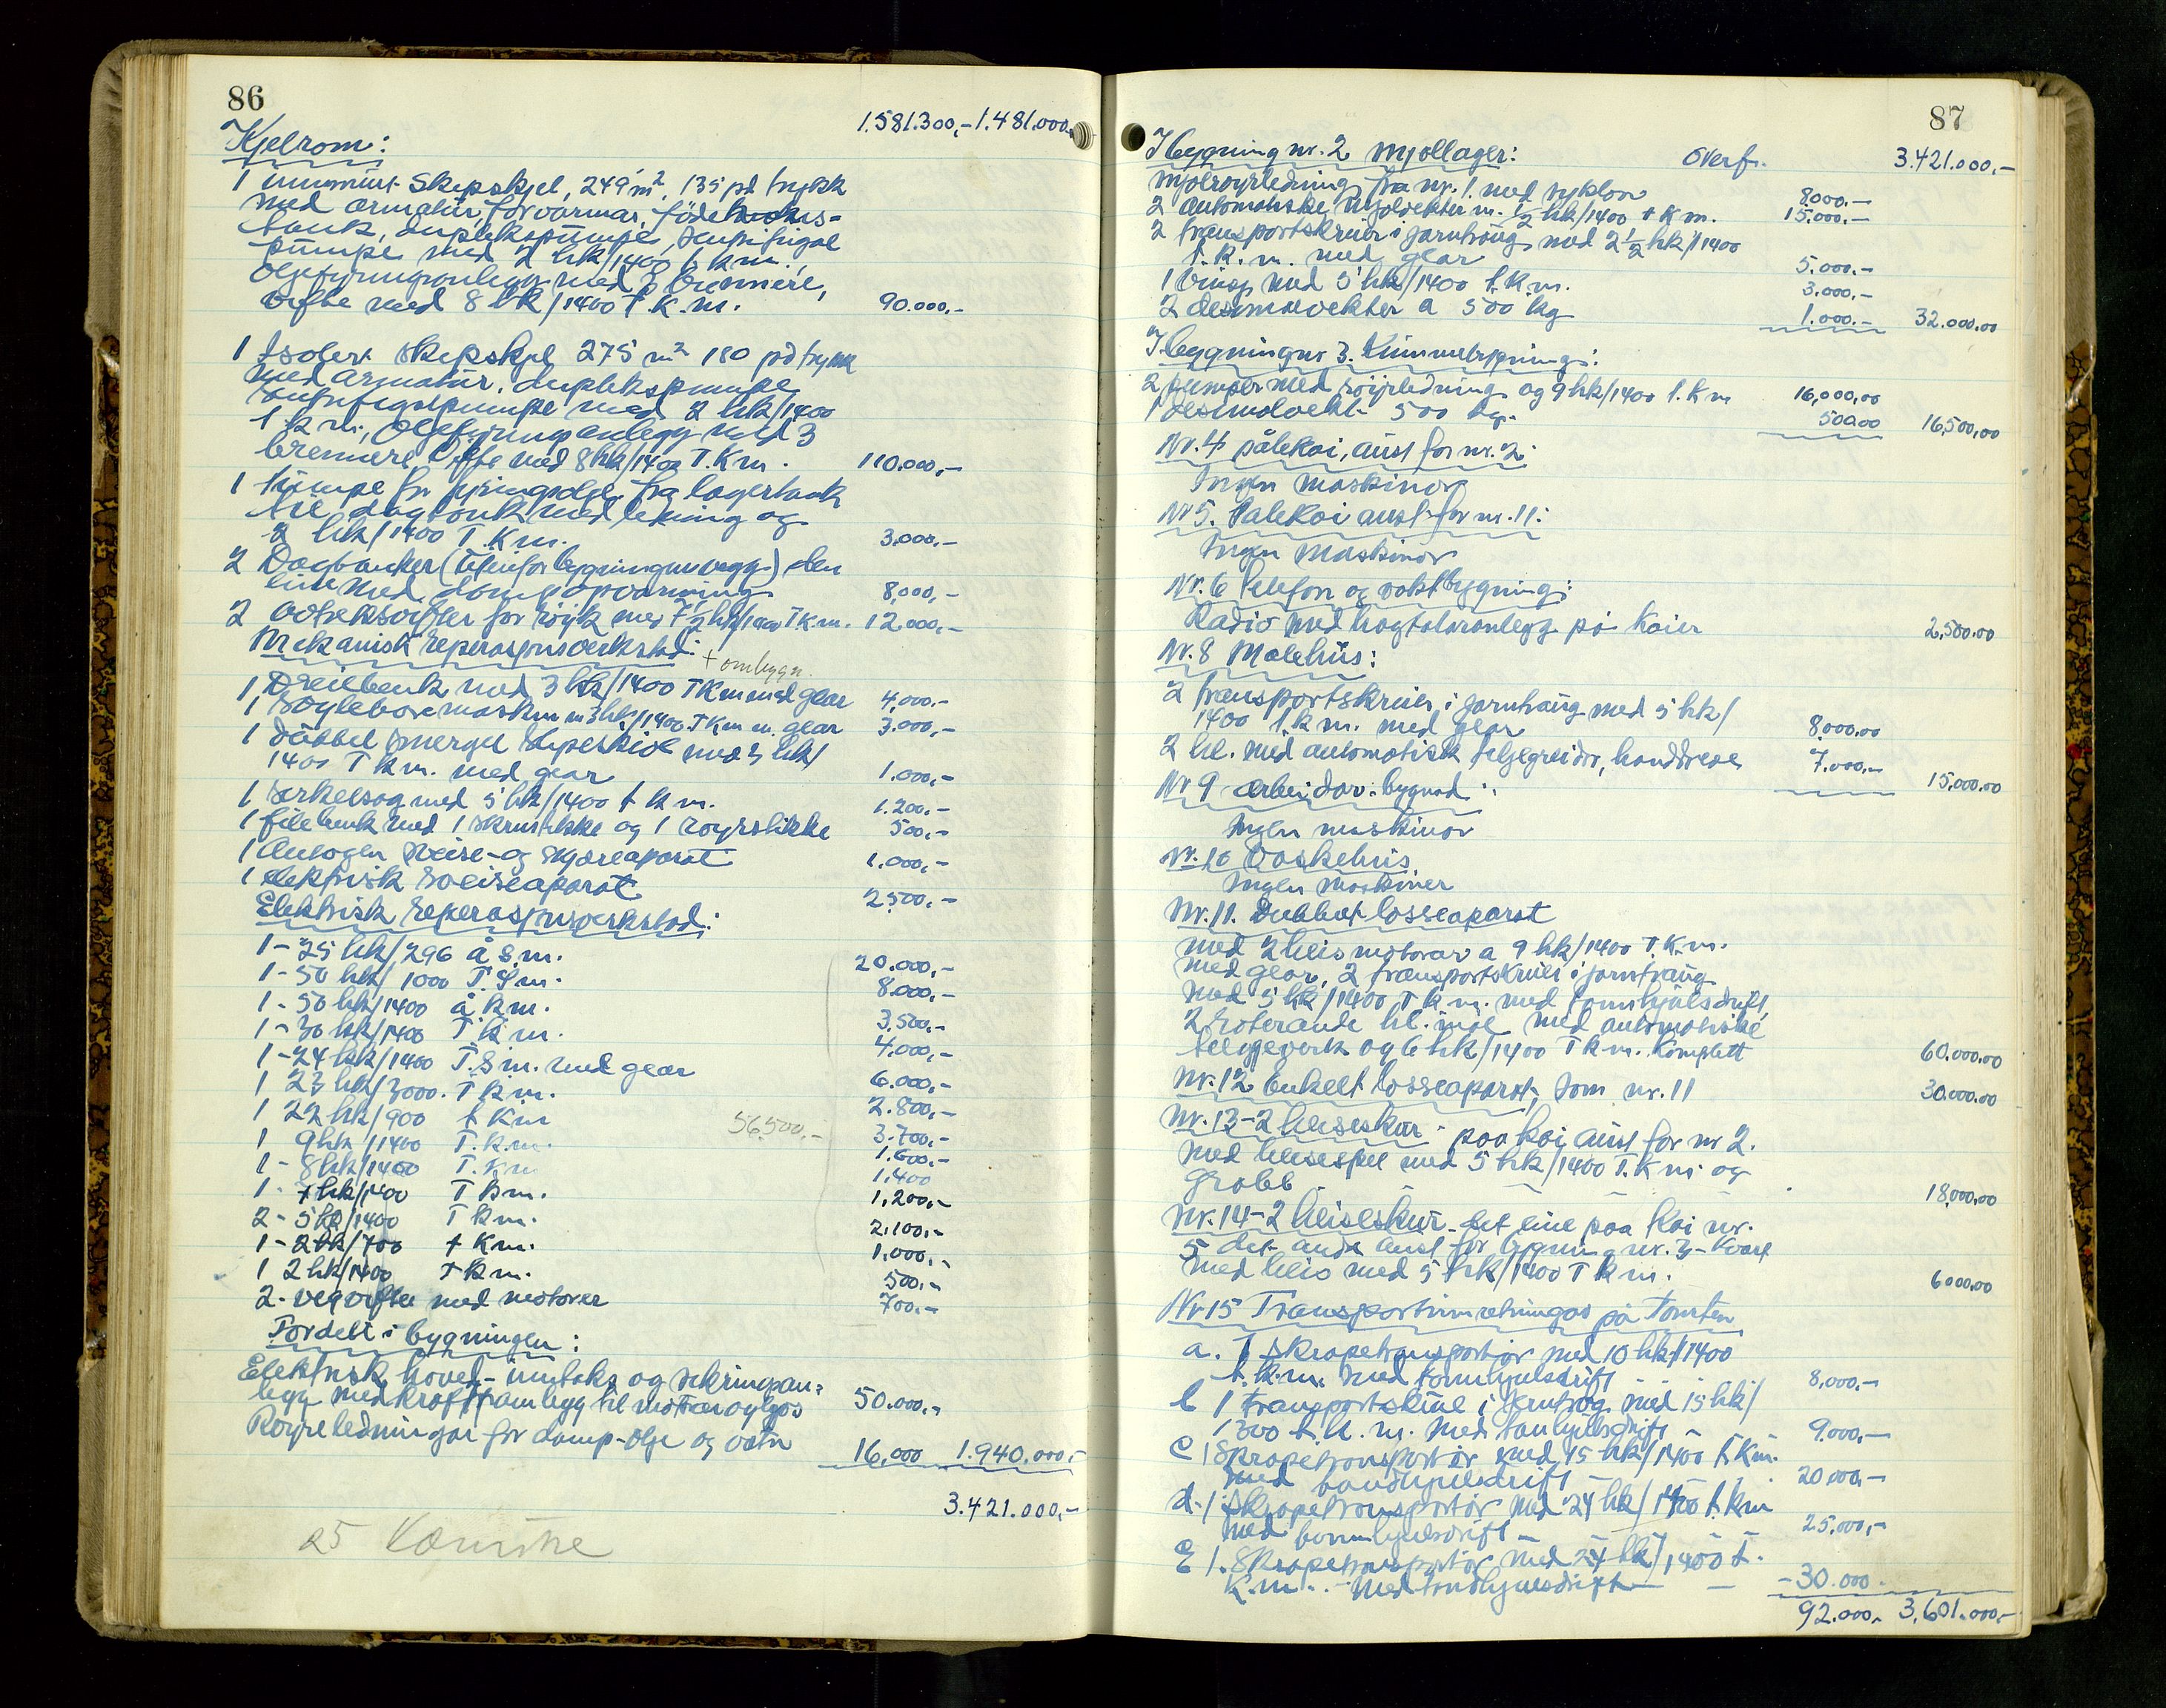 86
1.581.300,- 1.481.000,-
Kjelrom:
1 innmurt Skipskjel, 249 m², 135 pd trykk
med armatur, forvarmar, föde
tank, duplekspumpe, sentrifugal
pumpe med 2 hk/1400 t k m.,
Oljefyringsanlegg med 3 brennere,
vifte med 8 hk/1400 T.K.m. 90.000,-
1 Isolert skipskjel 275 m² 180 pd trykk
med armatur, duplekspumpe
sentrifugalpumpe med 2 hk/1400
t k m., Oljefyringsanlegg med 3
brennere Vifte med 8 hk/1400 T.K m. 110.000,-
1 Pumpe for fyringsolje fra lagertank
til dagtank med ledning og
2 hk/1400 T.K m. 3.000,-
2 Dagtanker (utenfor bygningens vegg) den
eine med dampopvarming 8,000,-
2 Avtreksvifter for röyk med 7½ hk/1400 T K m. 12.000,-
Mekanisk reperasjonsverkstad:
+ ombygn.
1 Dreiebenk med 3 hk/1400 TKm med gear 4,000.-
1 Söyleboremaskin m 3 hk/1400 TKm m. gear 3.000,-
1 dubbel smergel slipeskive med 3 hk/
1400 T k m. med gear 1.000,-
1 Sirkelsag med 5 hk/1400 t k m. 1.200.-
1 filebenk med 1 skrustikke og 1 röyrstikke 500,-
1 Autogen sveise- og skjæreaparat 1.000,-
1 elektrisk sveiseaparat 2500,-
Elektrisk reperasjonsverkstad:
1 - 25 hk/296 å s m. 20.000,-
1 - 50 hk/1000 T.S m. 8.000,-
1 - 50 hk/1400 å k m. 3.500,-
1 - 30 hk/1400 T k m. 4.000,-
1 - 24 hk/1400 T.S m. med gear 6.000,-
1 23 hk/3000. T k m. 2.800,-
1 22 hk/900 t K m 3.700,-
56.500,-
1 9 hk/1400 T.k.m. 1.600,-
1 - 8 hk/1400 T.K m 1.400
1 - 7 hk/1400 T k m. 1,200,-
2 - 5 hk/1400 T k m. 2.100,-
1 - 2 hk/700 t K m. 1.000,-
1 2 hk/1400 T k m. 500,-
2 - vegvifter med motorer 700,-
Fordelt i bygningen:
Elektrisk hoved- inntaks og sikringsan-
legg med kraftframlegg til motorar og lys 50.000,-
Röyrledningar for damp - olje og vatn 16,000 1.940.000,-
3.421.000,-
25 Kværne
87
I bygning nr. 2 mjöllager: Overf. 3.421.000,-
mjölröyrledning fra nr. 1. med syklon 8000.-
2 automatiske mjölvekter m. ½ hk/1400 t K m. 15.000.-
2 transportskruer i jarntraug med 2½ hk/1400
t.k.m. med gear 5.000.-
1 vinsj med 5 hk/1400 t.k.m. 3.000,-
2 desimalvekter a 500 kg 1.000.- 32.000.00
I bygning nr 3. Tunnelbygning:
2 pumper med röyrledning og 9 hk/1400 t.k m 16,000,00
1 desimalvekt 500 kg. 500.00 16,500,00
Nr. 4 pålekai, aust for nr. 2:
Ingen maskinor
Nr 5. Pålekai aust for nr. 11:
Ingen maskinor
Nr. 6 Telefon og vaktbygning:
Radio med hogtalaranlegg på Kaier 2,500.00
Nr. 8 Målehus:
2 transportskruer i jarntraug med 5 hk/
1400 t.k m. med gear 8,000.00
2 hl. med automatisk teljegreidor, handdreve 7.000,- 15,000.00
Nr 9 arbeidar-bygnad:
Ingen maskinor
Nr. 10 Vaskehus
Ingen maskiner
Nr. 11. Dubbelt losseaparat
med 2 heismotorar a 9 hk/1400 T.K m.
med gear, 2 transportskruer i jarntraug
med 5 hk/1400 T k m. med tannhjulsdrift,
2 roterande hl. mål med automatiske
teljeverk og 6 hk/1400 T k m. Komplett 60.000.00
Nr. 12 Enkelt losseaparat, som nr. 11 30.000.00
Nr. 13 - 2 heiseskur - paa kai aust for nr 2.
med heisespel med 5 hk/1400 T.K m og
Grabb 18,000,00
Nr. 14 - 2 heiseskur - det eine paa kai nr.
5 det andre aust for bygning nr. 3 - Kvart
med heis med 5 hk/1400 T k m. 6000.00
Nr 15 Transportinnretningar på Tomten
a. 1 skrapetransportör med 10 hk/1400
t.k.m. med tannhjulsdrift 8,000.-
b 1 transportskrue i jerntrog med 15 hk/
1300 t.k.m. med tannhjulsdrift 9.000,-
C 1 Skrapetransportör med 15 hk/1400 t.K m.
med tandhjulsdrift 20.000,-
d. 1 skrapetransportör med 24 hk/1400 t.k m
med tannhjulsdrift - 25.000,-
E 1. Skrapetransportör med 24 hk/1400 t.
K.m. - med tandhjulsdrift - -30.000.
92.000,- 3,601.000,-